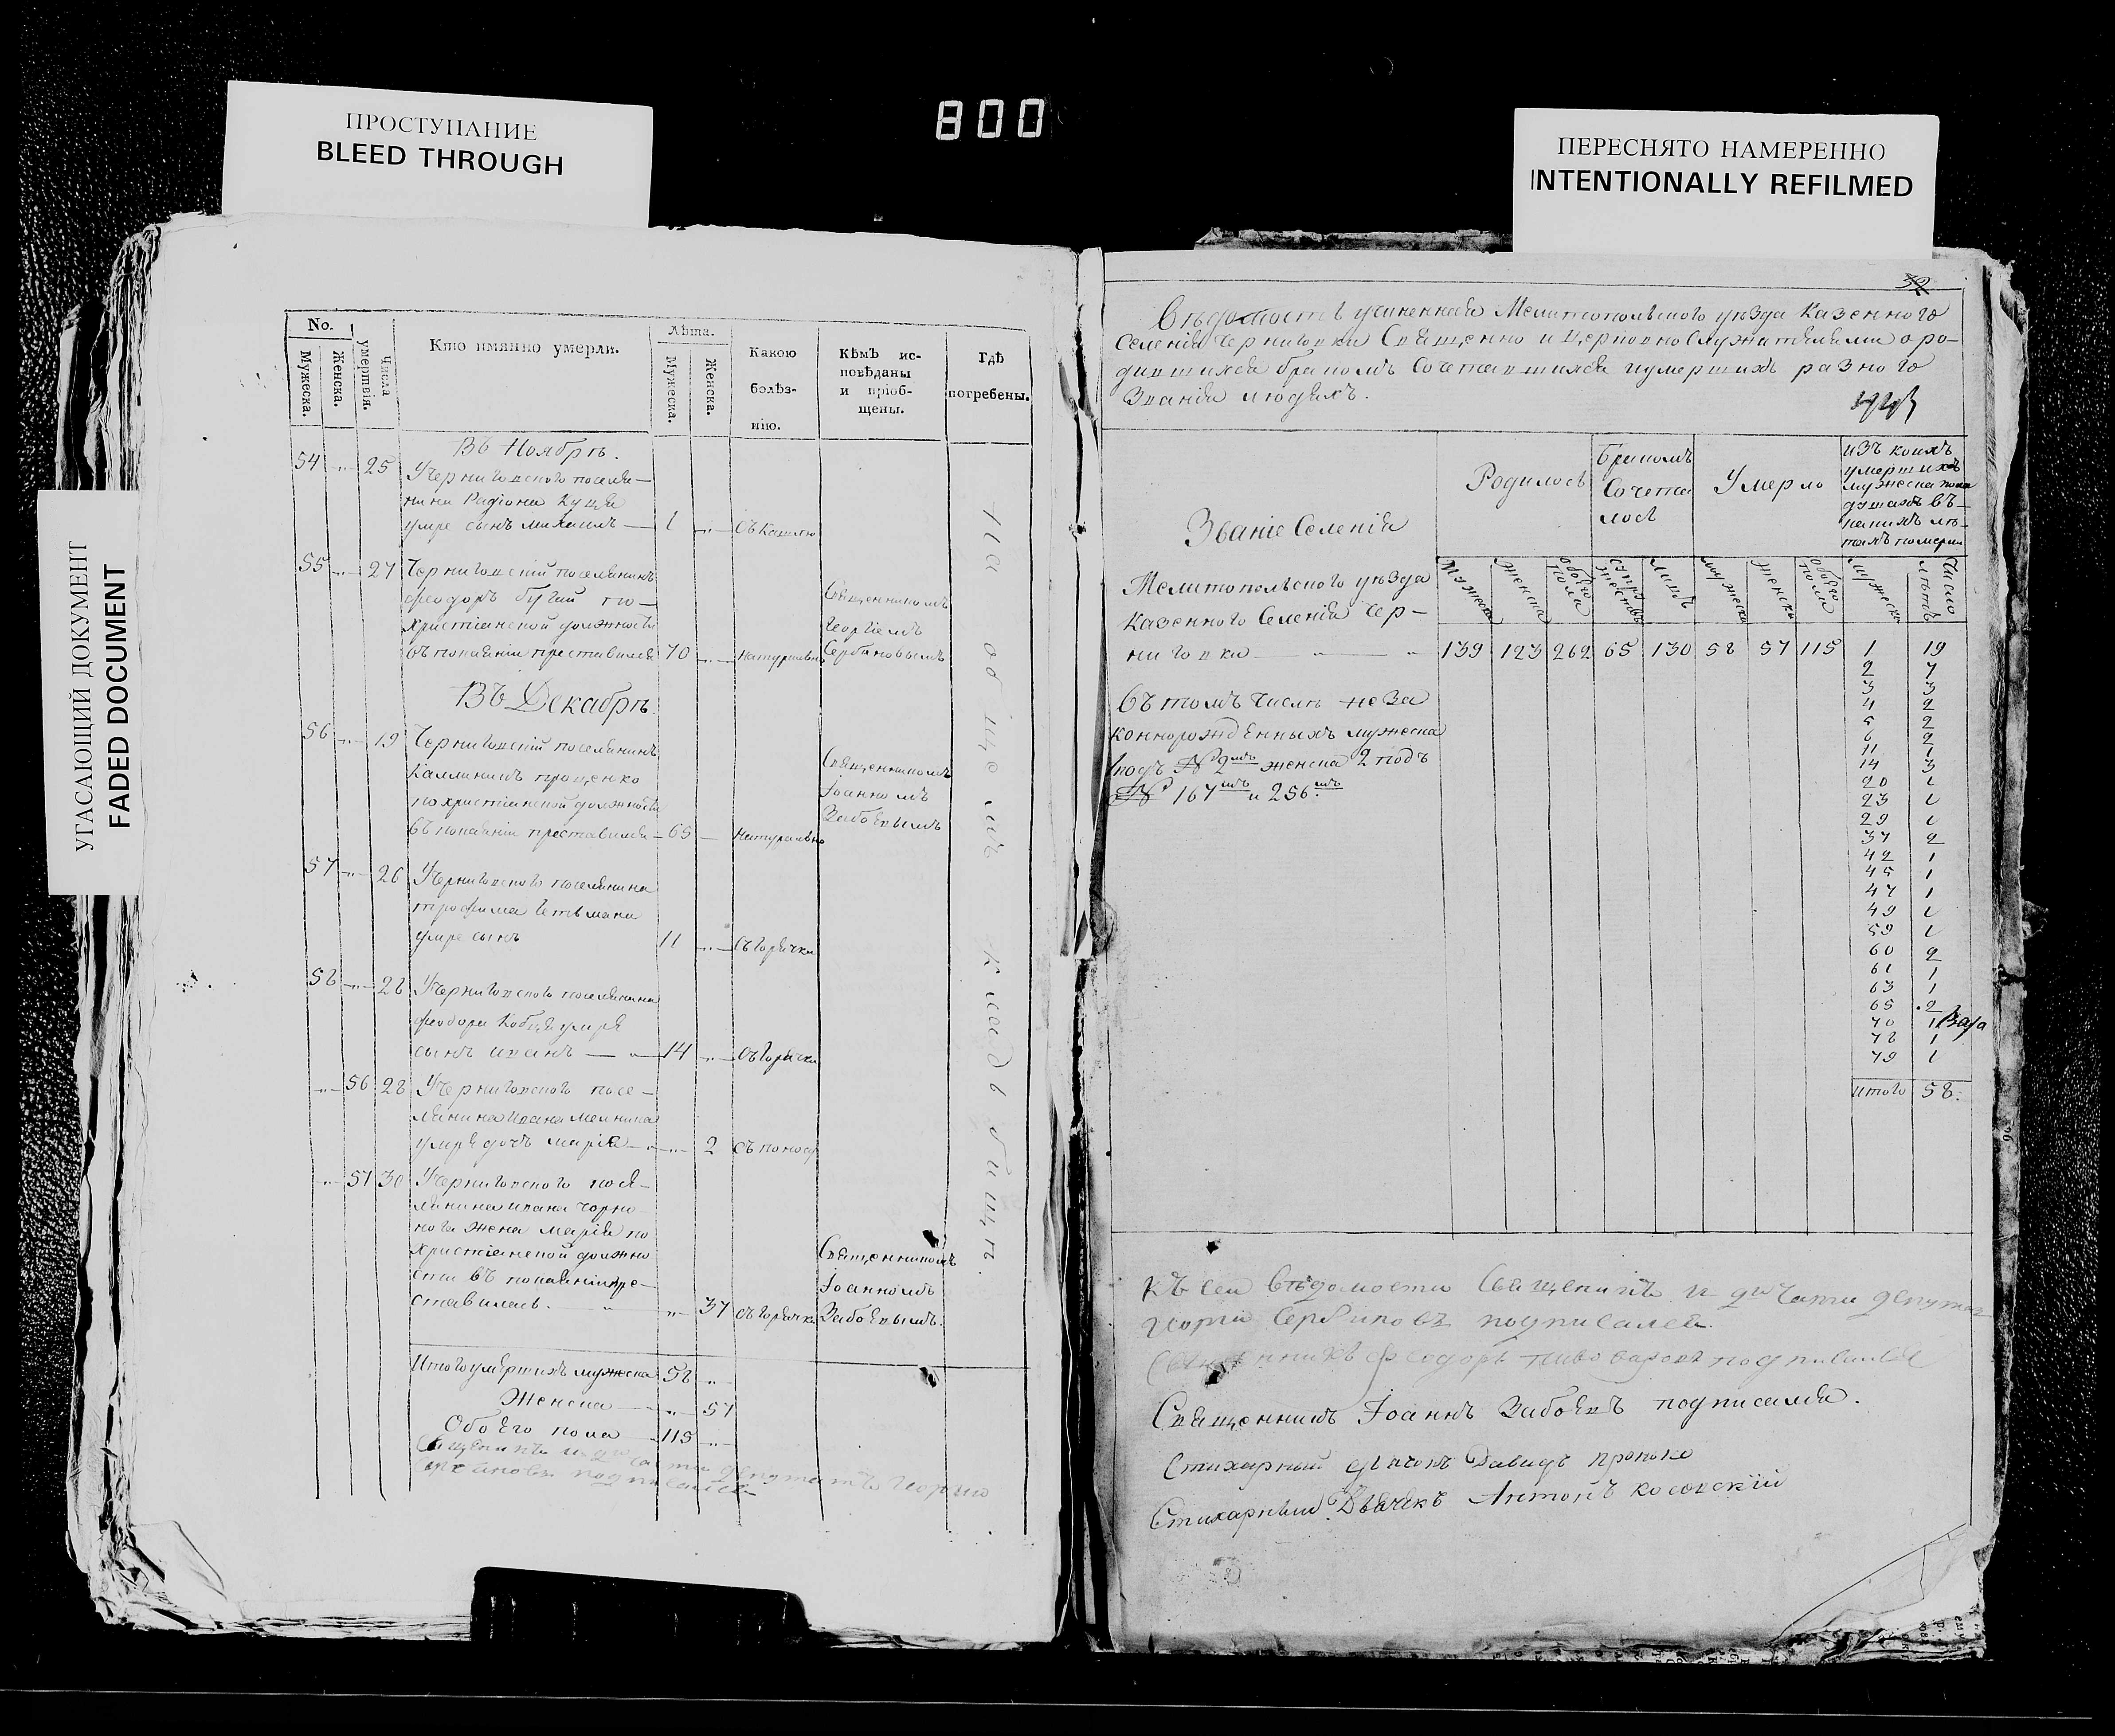 ПРОСТУПАНИЕ
BLEED THROUGH
800
ПЕРЕСНЯТО НАМЕРЕННО
INTENTIONALLY REFILMED
УГАСАЮЩИЙ ДОКУМЕНТ
FADED DOCUMENT
No.
Мужеска.
Женска.
Числа умертвія.
Кто имянно умерли.
Лѣта.
Мужеска.
Женска.
Какою болѣз-нію.
Кѣмъ ис-повѣданы и пріоб-щены.
Гдѣ погребены.
Въ Ноябрѣ.
54 25 Черниговского поселя-
нина Радіона Куція
умре сынъ михаилъ 1 Съ Кашлю
55 27 Черниговскій поселянинъ
феодоръ бугай по
христіанской должности
въ покаяніи преставился 70 натурально
Священникомъ
Георгіемъ
Сербиновымъ
Въ Декабрѣ.
56 19 Черниговскій поселянинъ
Каллиникъ проценко
по христіанской должности
въ покаяніи преставился 65 натурально
Священникомъ
Іоанномъ
Забоевымъ
57 26 Черниговского поселянина
трофима Гетьмана
умре сынъ 11 съ горячки
58 28 Черниговского поселянина
феодора Кобця умре
сынъ иванъ 14 съ горячки
56 28 Черниговского посе-
лянина ивана мелника
умре дочь марія 2 съ поносу
57 30 Черниговского посе-
лянина ивана Чорно
жена марія по
христіанской должно
сти въ покаяніи пре-
ставилась. 37 съ горячки
Священникомъ
Іоанномъ
Забоевымъ.
На общемъ кладбищѣ.
Итого умершихъ мужеска 58
Женска 57
Обоего пола 115
депутатъ Георгій
Сербиновъ подписался
32
Вѣдомость учиненная Мелитопольского уѣзда Казенного
Селенія Черниговки Священно и Церковно Служителями о ро-
дившихся бракомъ Сочетавшихся и умершихъ разного
Званія людяхъ.
Званіе Селенія
Родилось
Бракомъ Сочета лось
Умерло
изъ коихъ
умершихъ
мужеска пола
Мужеска
Женска
обоего пола
супружествъ
лицъ
мужеска
женска
обоего пола
мужеска
Число лѣтъ
Мелитопольского уѣзда
Казенного Селенія Чер-
ниговки 139 123 262 65 130 58 57 115
Въ томъ числѣ неза
коннорожденныхъ мужеска
подъ № 2мъ женска 2 подъ
№ 167мъ и 256мъ
1 19
2 7
3 3
4 2
5 2
6 2
11 1
14 3
20 1
23 1
29 1
37 2
42 1
45 1
47 1
49 1
59 1
60 2
61 1
63 1
65 2
70 1
78 1
79 1
итого 58.
Къ сей вѣдомости Священикъ
Георгій Сербиновъ подписался.
Священникъ феодоръ пивоваровъ подписался
Священникъ Іоаннъ Забоевъ подписался.
Стихарный дьячокъ Давидъ
Стихарный Дьячекъ Антонъ косовскій